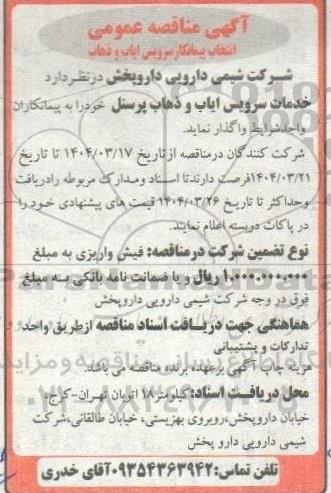 آگهی مناقصه عمومی
انتخاب پیمانکار سرویس ایاب و ذهاب
شرکت شیمی دارویی داروپخش درنظر دارد
خدمات سرویس ایاب و ذهاب پرسنل خود را به پیمانکاران
واجد شرایط واگذار نماید.
شرکت کنندگان در مناقصه از تاریخ ۱۴۰۴/۰۳/۱۷ تا تاریخ
۱۴۰۴/۰۳/۲۱ فرصت دارند تا اسناد و مدارک مربوطه را دریافت
و حداکثر تا تاریخ ۱۴۰۴/۰۳/۲۶ قیمت های پیشنهادی خود را
در پاکات دربسته اعلام نمایند.
نوع تضمین شرکت در مناقصه: فیش واریزی به مبلغ
۱.۰۰۰.۰۰۰.۰۰۰ ریال و یا ضمانت نامه بانکی به مبلغ
فوق در وجه شرکت شیمی دارویی داروپخش
هماهنگی جهت دریافت اسناد مناقصه از طریق واحد
تدارکات و پشتیبانی
هزینه چاپ آگهی برعهده برنده مناقصه می باشد.
محل دریافت اسناد: کیلومتر ۱۸ اتوبان تهران-کرج،
خیابان داروپخش، روبروی بهزیستی، خیابان طالقانی، شرکت
شیمی دارویی دارو پخش
تلفن تماس: ۰۹۳۵۴۳۶۳۹۴۲ آقای خدری